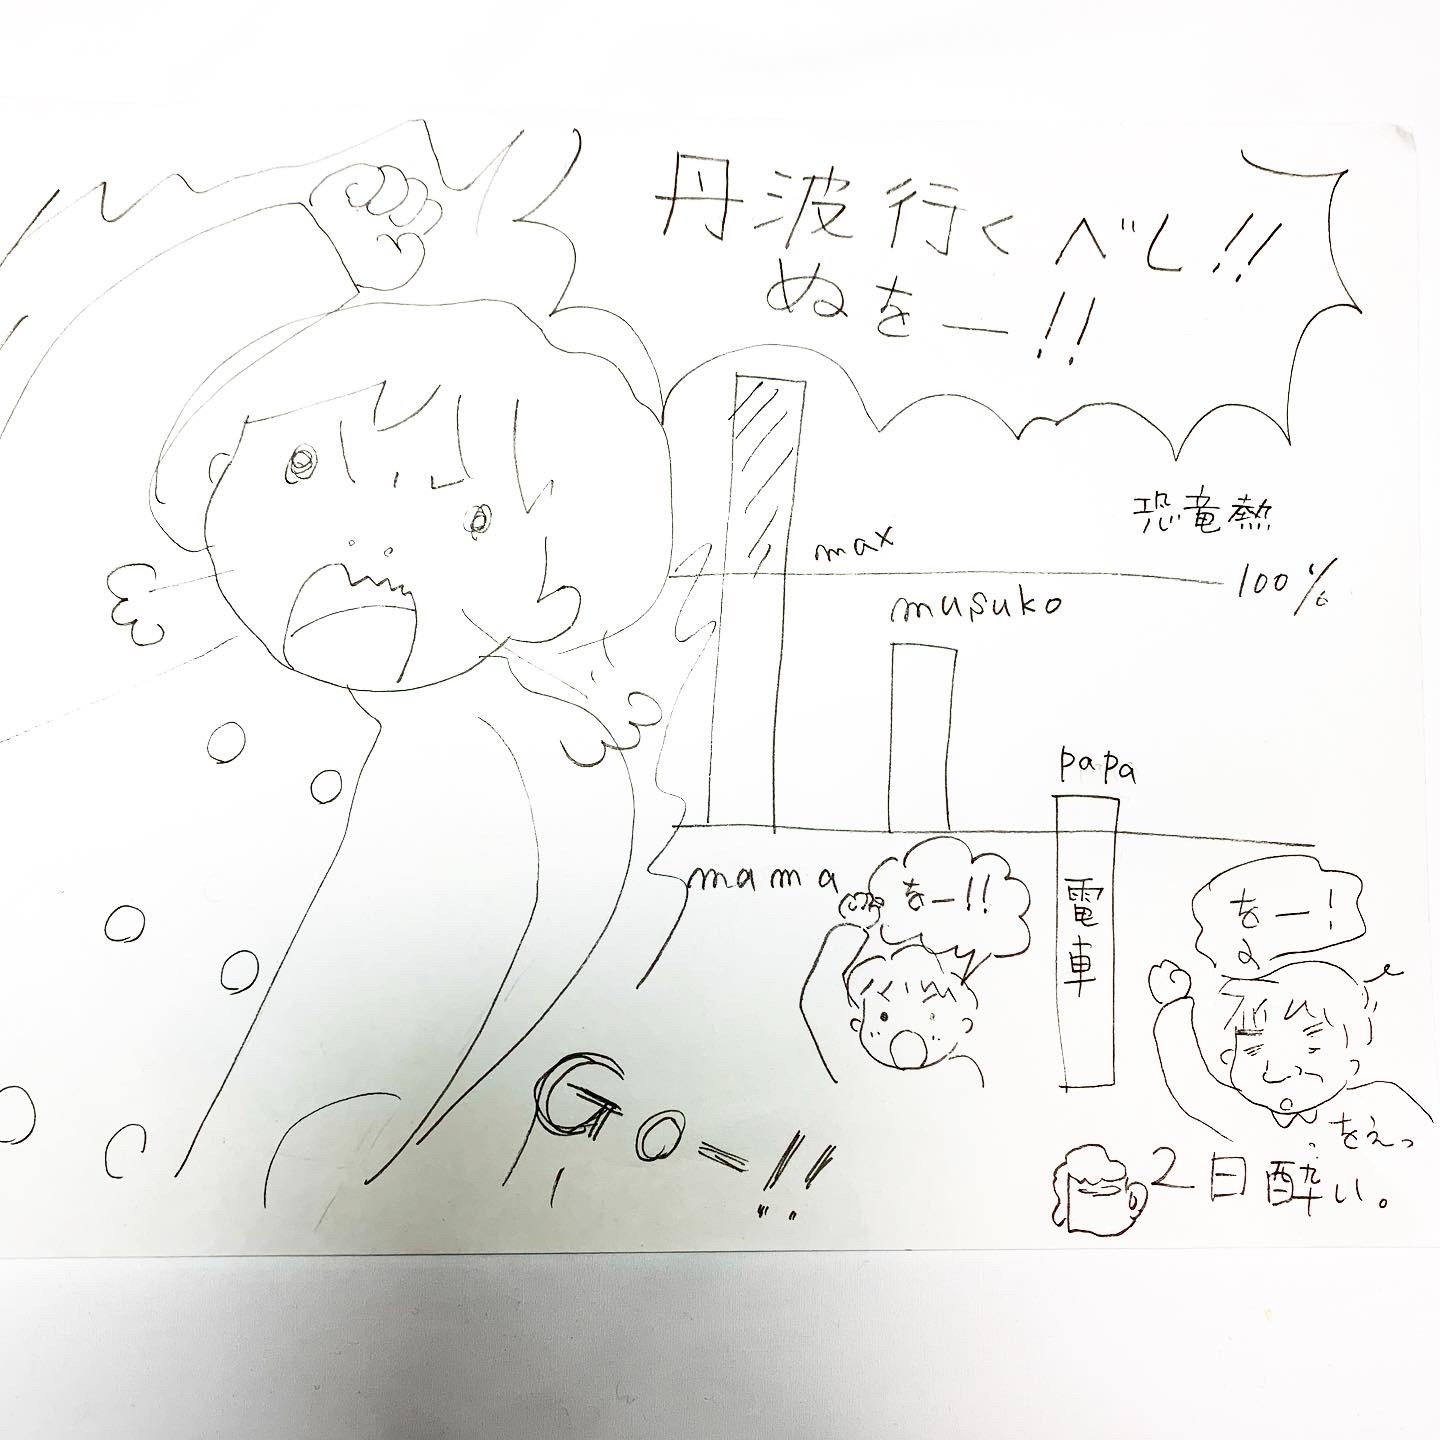 丹波行くべし!!
ぬをー!!
恐竜熱
max
100%
musuko
papa
mama
をー!!
電車
をー!
Go=!!
をえっ
2日酔い。